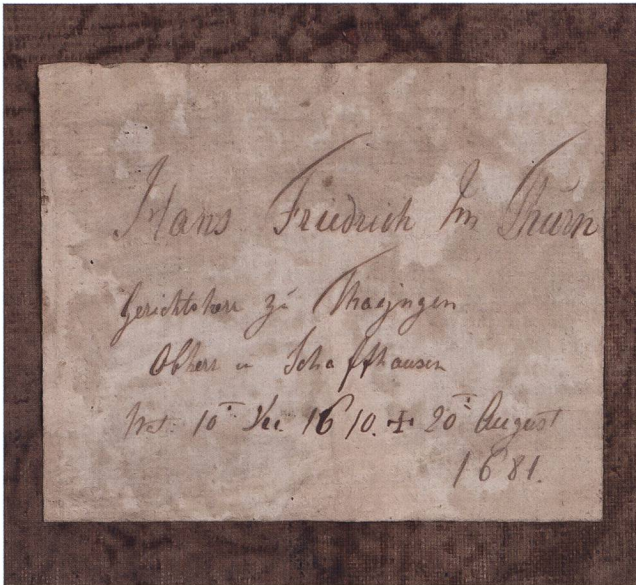 Hans Friedrich Im Thurn
Gerichtsherr zu Thayngen
Obherr u Schaffhausen
10: 1610. + 20: August
1681.